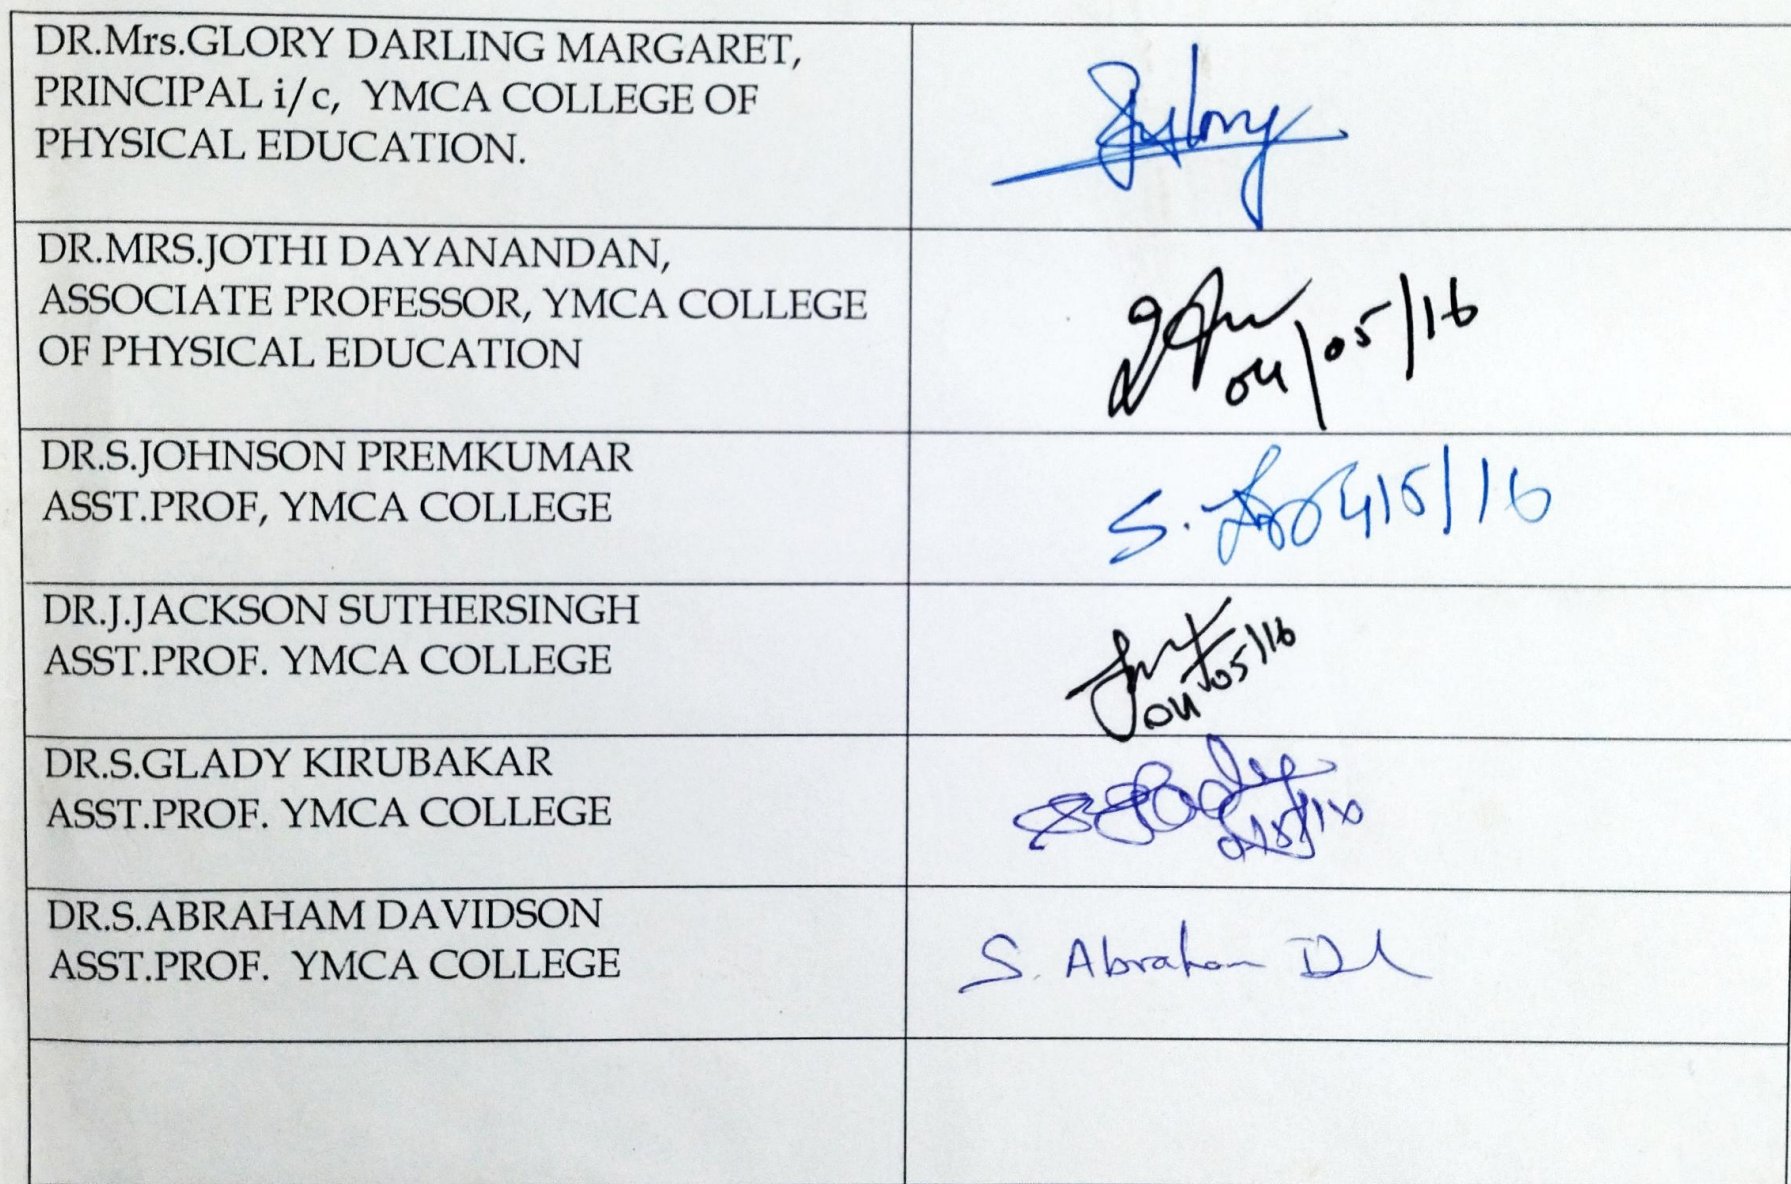 DR.Mrs.GLORY DARLING MARGARET,
PRINCIPAL i/c, YMCA COLLEGE OF
PHYSICAL EDUCATION.
DR.MRS.JOTHI DAYANANDAN,
ASSOCIATE PROFESSOR, YMCA COLLEGE
OF PHYSICAL EDUCATION
04/05/16
DR.S.JOHNSON PREMKUMAR
ASST.PROF, YMCA COLLEGE
S. 4/5/16
DR.J.JACKSON SUTHERSINGH
ASST.PROF. YMCA COLLEGE
04/05/16
DR.S.GLADY KIRUBAKAR
ASST.PROF. YMCA COLLEGE
DR.S.ABRAHAM DAVIDSON
ASST.PROF. YMCA COLLEGE
S. Abraham